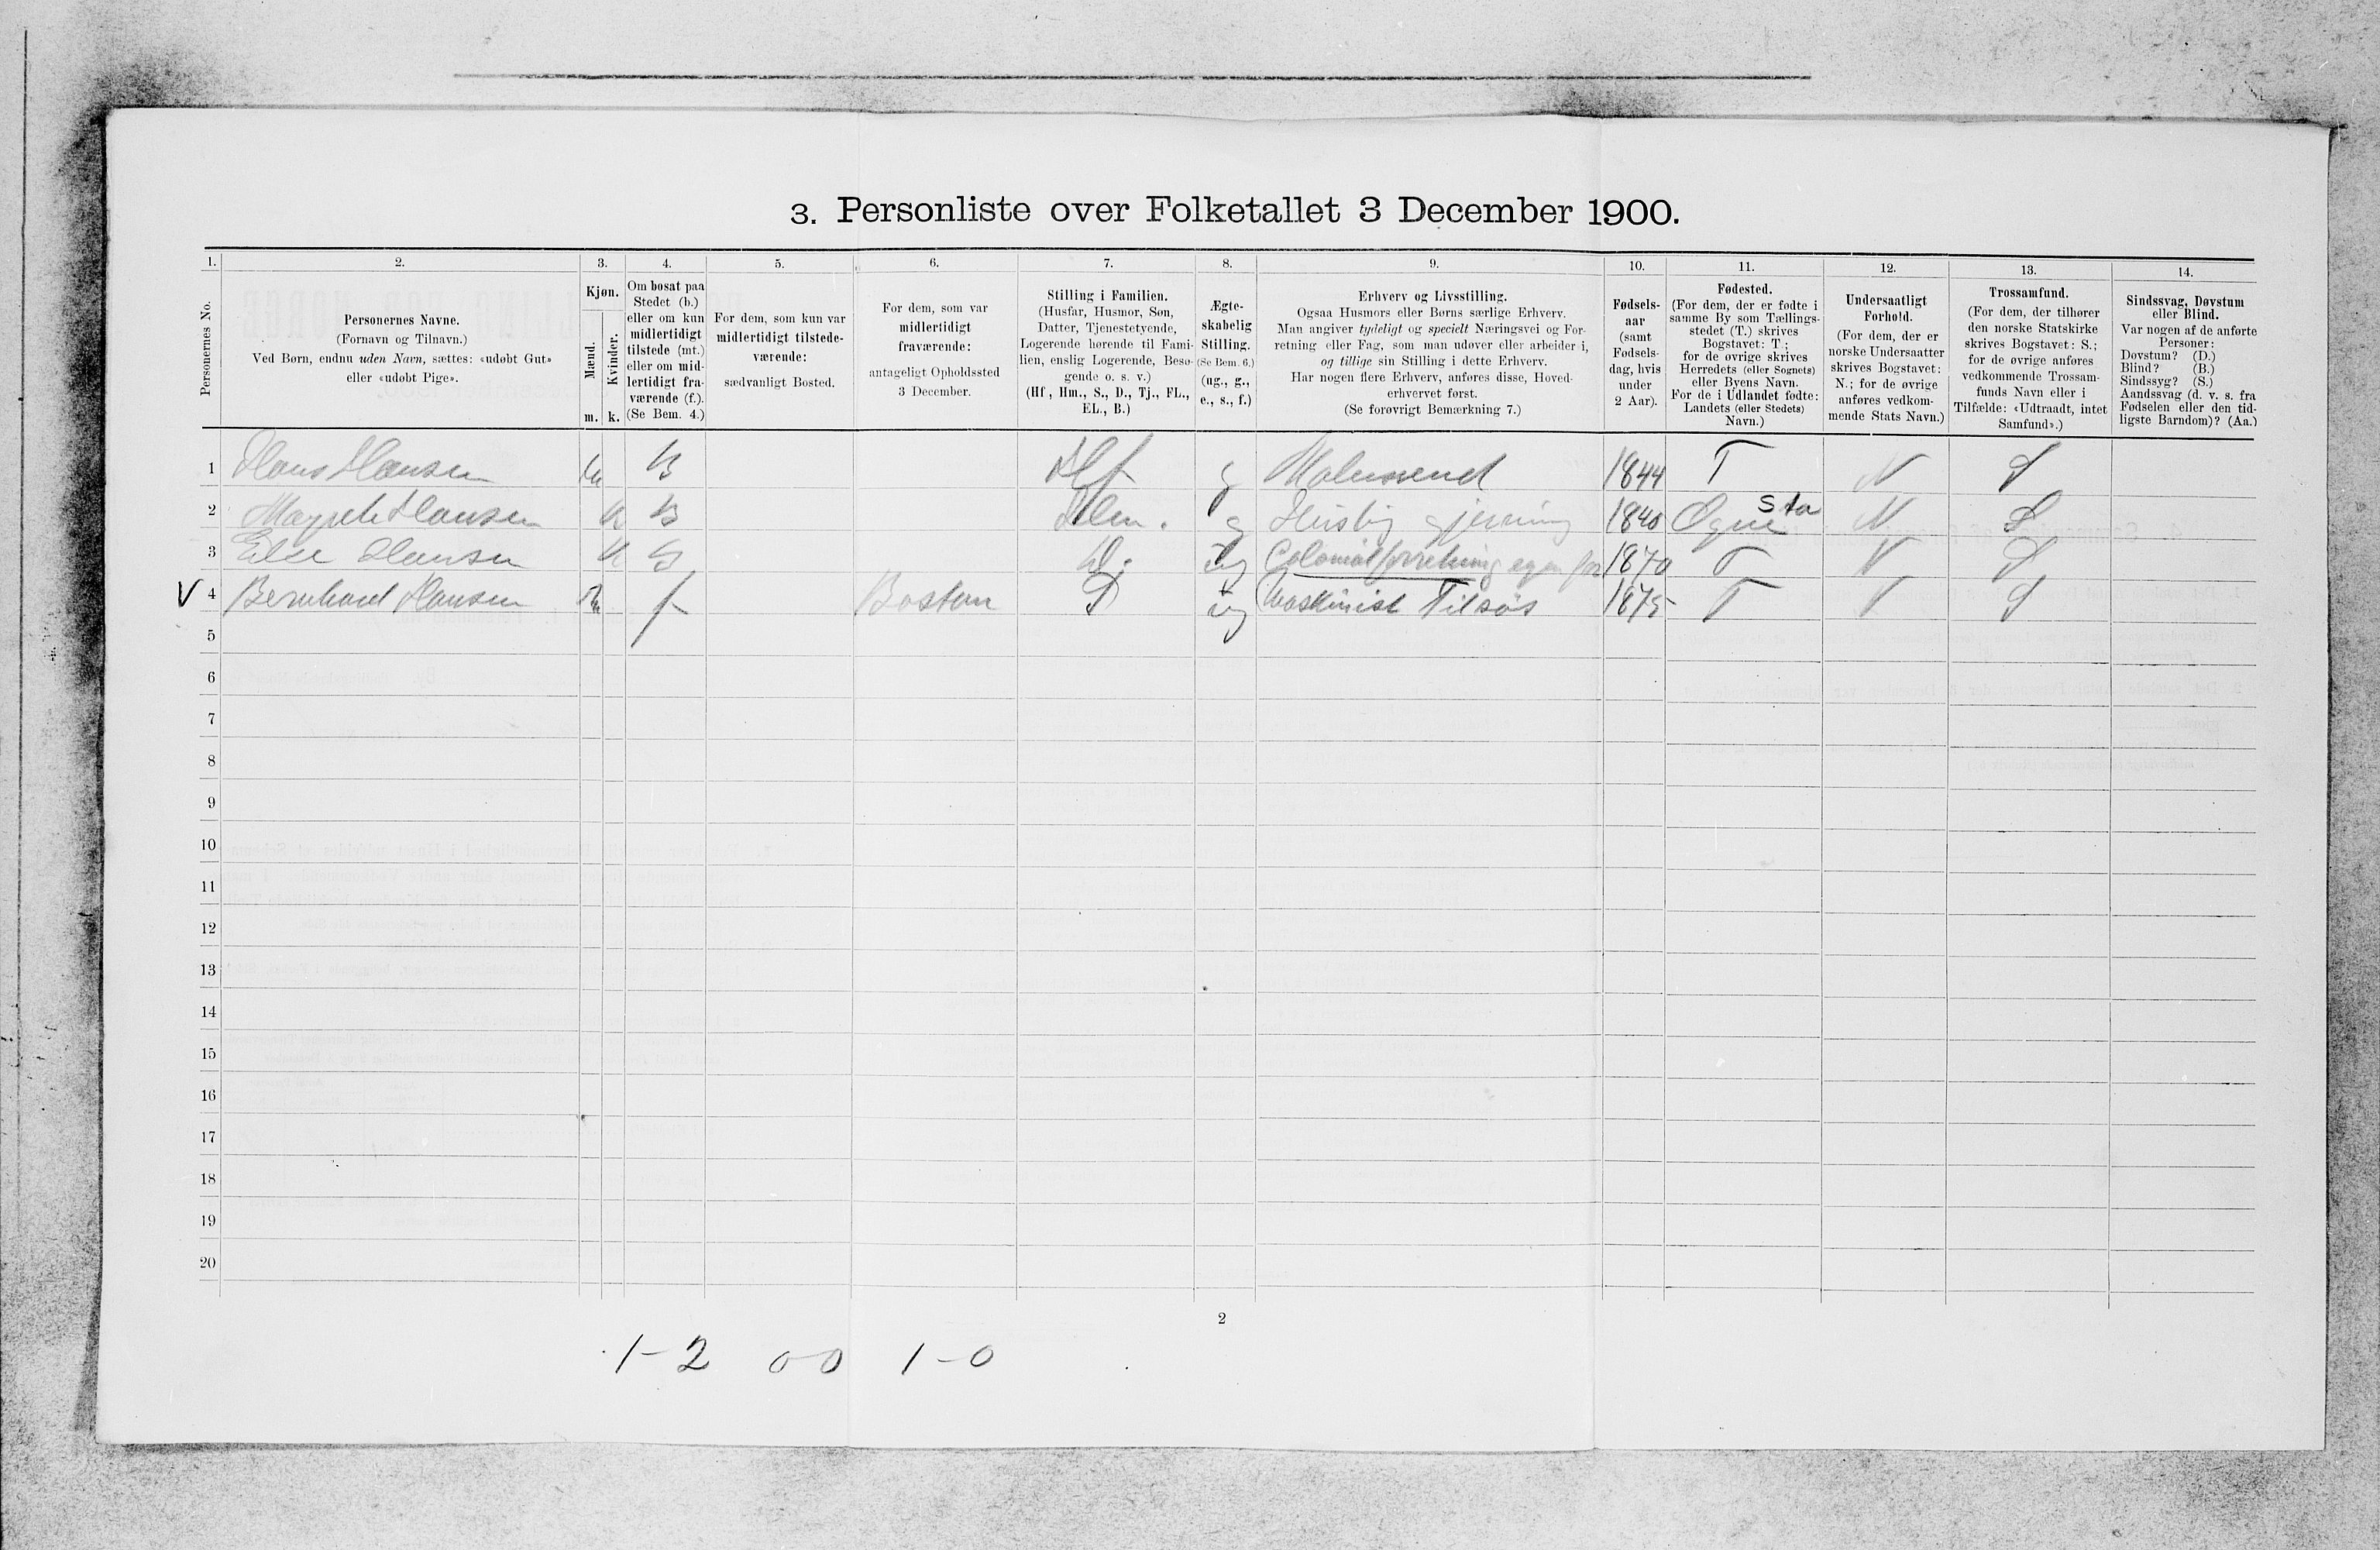 3. Personliste over Folketallet 3 December 1900.
1. 2. 3. 4. 5. 6. 7. 8. 9. 10. 11. 12. 13. 14.
Personernes No.
Personernes Navne.
(Fornavn og Tilnavn.)
Ved Børn, endnu uden Navn, sættes: «udøbt Gut»
eller «udøbt Pige».
Kjøn.
Mænd.
Kvinder.
m. k.
Om bosat paa
Stedet (b.)
eller om kun
midlertidigt
tilstede (mt.)
eller om mid-
lertidigt fra-
værende (f.).
(Se Bem. 4.)
For dem, som kun var
midlertidigt tilstede-
værende:
sædvanligt Bosted.
For dem, som var
midlertidigt
fraværende:
antageligt Opholdssted
3 December.
Stilling i Familien.
(Husfar, Husmor, Søn,
Datter, Tjenestetyende,
Logerende hørende til Fami-
lien, enslig Logerende, Besø-
gende o. s. v.)
(Hf., Hm., S., D., Tj., FL.,
EL., B.)
Ægte-
skabelig
Stilling.
(Se Bem. 6.)
(ug., g.,
e., s., f.)
Erhverv og Livsstilling.
Ogsaa Husmors eller Børns særlige Erhverv.
Man angiver tydeligt og specielt Næringsvei og For-
retning eller Fag, som man udøver eller arbeider i,
og tillige sin Stilling i dette Erhverv.
Har nogen flere Erhverv, anføres disse, Hoved-
erhvervet først.
(Se forøvrigt Bemærkning 7.)
Fødsels-
aar
(samt
Fødsels-
dag, hvis
under
2 Aar).
Fødested.
(For dem, der er fødte i
samme By som Tællings-
stedet (T.) skrives
Bogstavet: T.;
for de øvrige skrives
Herredets (eller Sognets)
eller Byens Navn.
For de i Udlandet fødte:
Landets (eller Stedets)
Navn.)
Undersaatligt
Forhold.
(For dem, der er
norske Undersaatter
skrives Bogstavet:
N.; for de øvrige
anføres vedkom-
mende Stats Navn.)
Trossamfund.
(For dem, der tilhører
den norske Statskirke
skrives Bogstavet: S.;
for de øvrige anføres
vedkommende Trossam-
funds Navn eller i
Tilfælde: «Udtraadt, intet
Samfund».)
Sindssvag, Døvstum
eller Blind.
Var nogen af de anførte
Personer:
Døvstum? (D.)
Blind? (B.)
Sindssyg? (S.)
Aandssvag (d. v. s. fra
Fødselen eller den tid-
ligste Barndom)? (Aa.)
1 Hans Hansen m B Hf g 1844 T N S
Sta
2 Hansen k B Hm. g Huslig gjerning 1840 Ogne N S
3 Else Hansen k B D. ug Colonialforretning egen for 1870 T N S
V 4 Bernhard Hansen m f Boston S ug Maskinist Tilsøs 1875 T N S
5
6
7
8
9
10
11
12
13
14
15
16
17
18
19
20
2
1-2 0-0 1-0